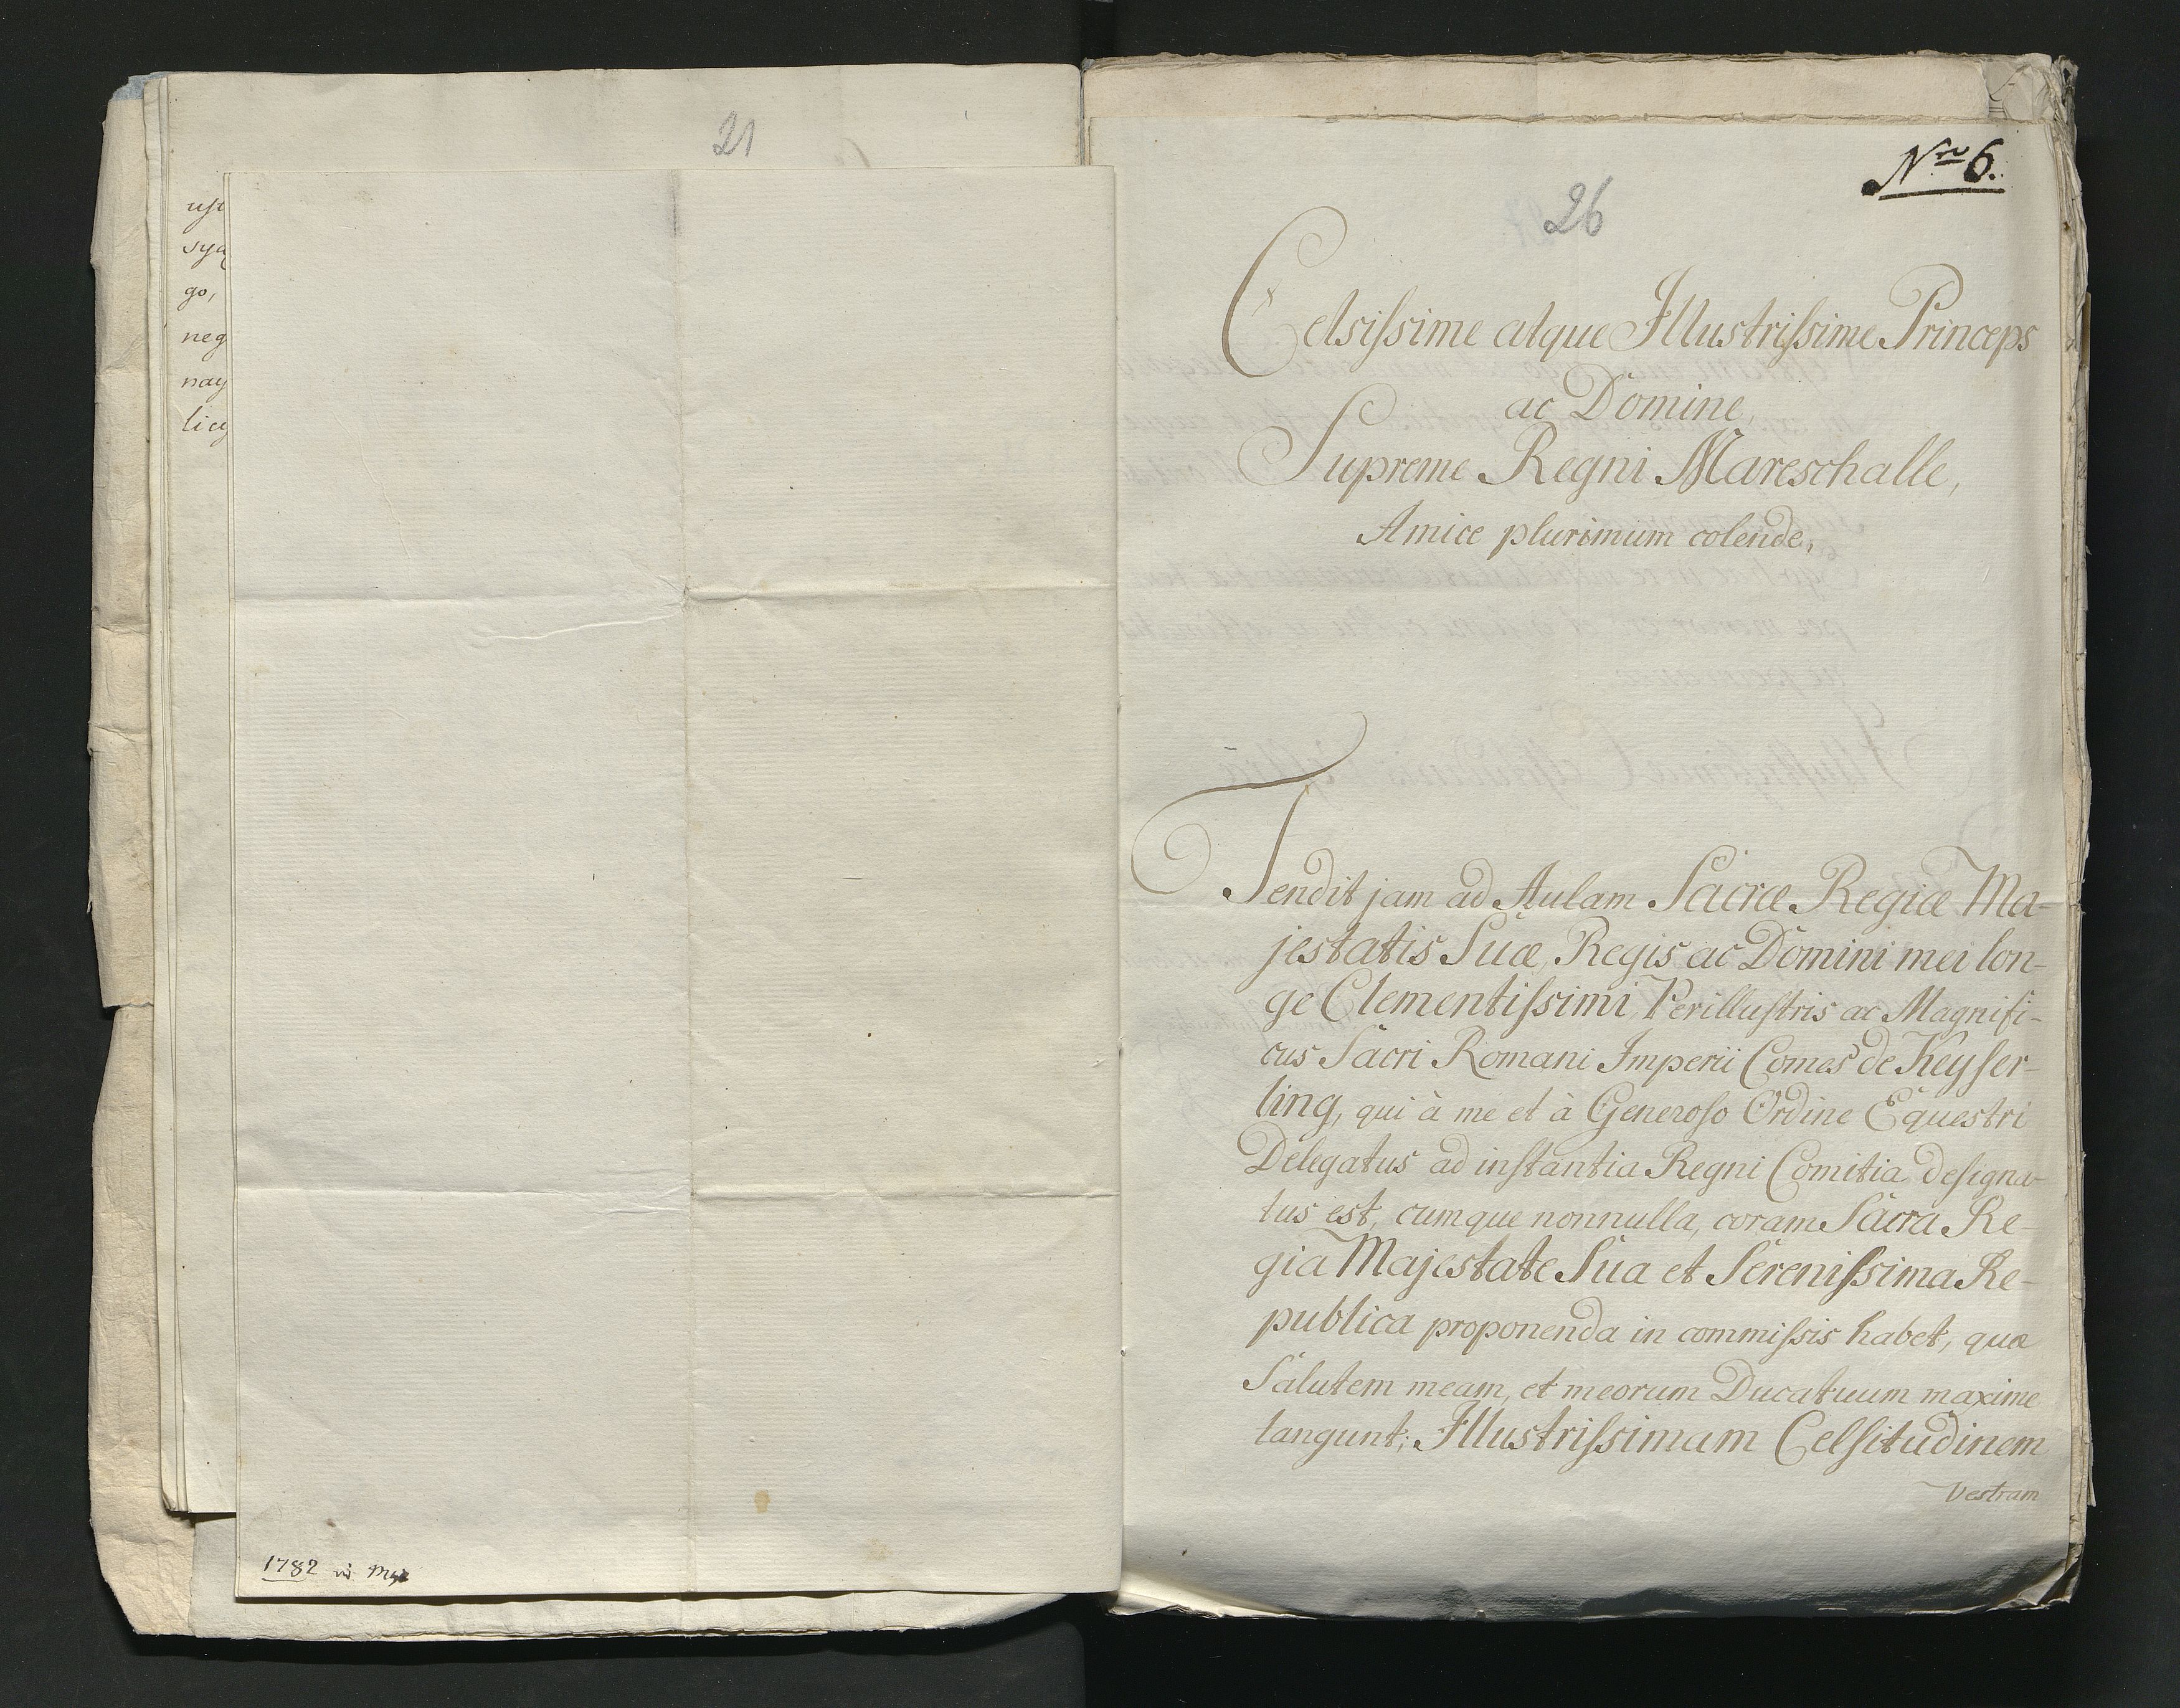 21
go,
neg
nay
1782
Nro 6.
26
Celsissime atque Illustrissime Princeps
ac Domine,
Supreme Regni Mareschalle,
Amice plurimum colende,
Tendit jam ad Aulam Sacræ Regiæ Ma-
jestatis Suæ, Regis ac Domini mei lon-
ge Clementissimi Perillustris ac Magnifi-
cus Sacri Romani Imperii Comes de Keyser-
ling, qui à me et à Generoso Ordine Equestri
Delegatus ad instantia Regni Comitia designa-
tus est, cumque nonnulla, coram Sacra Re-
gia Majestate Sua et Serenissima Re-
publica proponenda in commissis habet, quæ
Salutem meam, et meorum Ducatuum maxime
tangunt; Illustrissimam Celsitudinem
Vestram